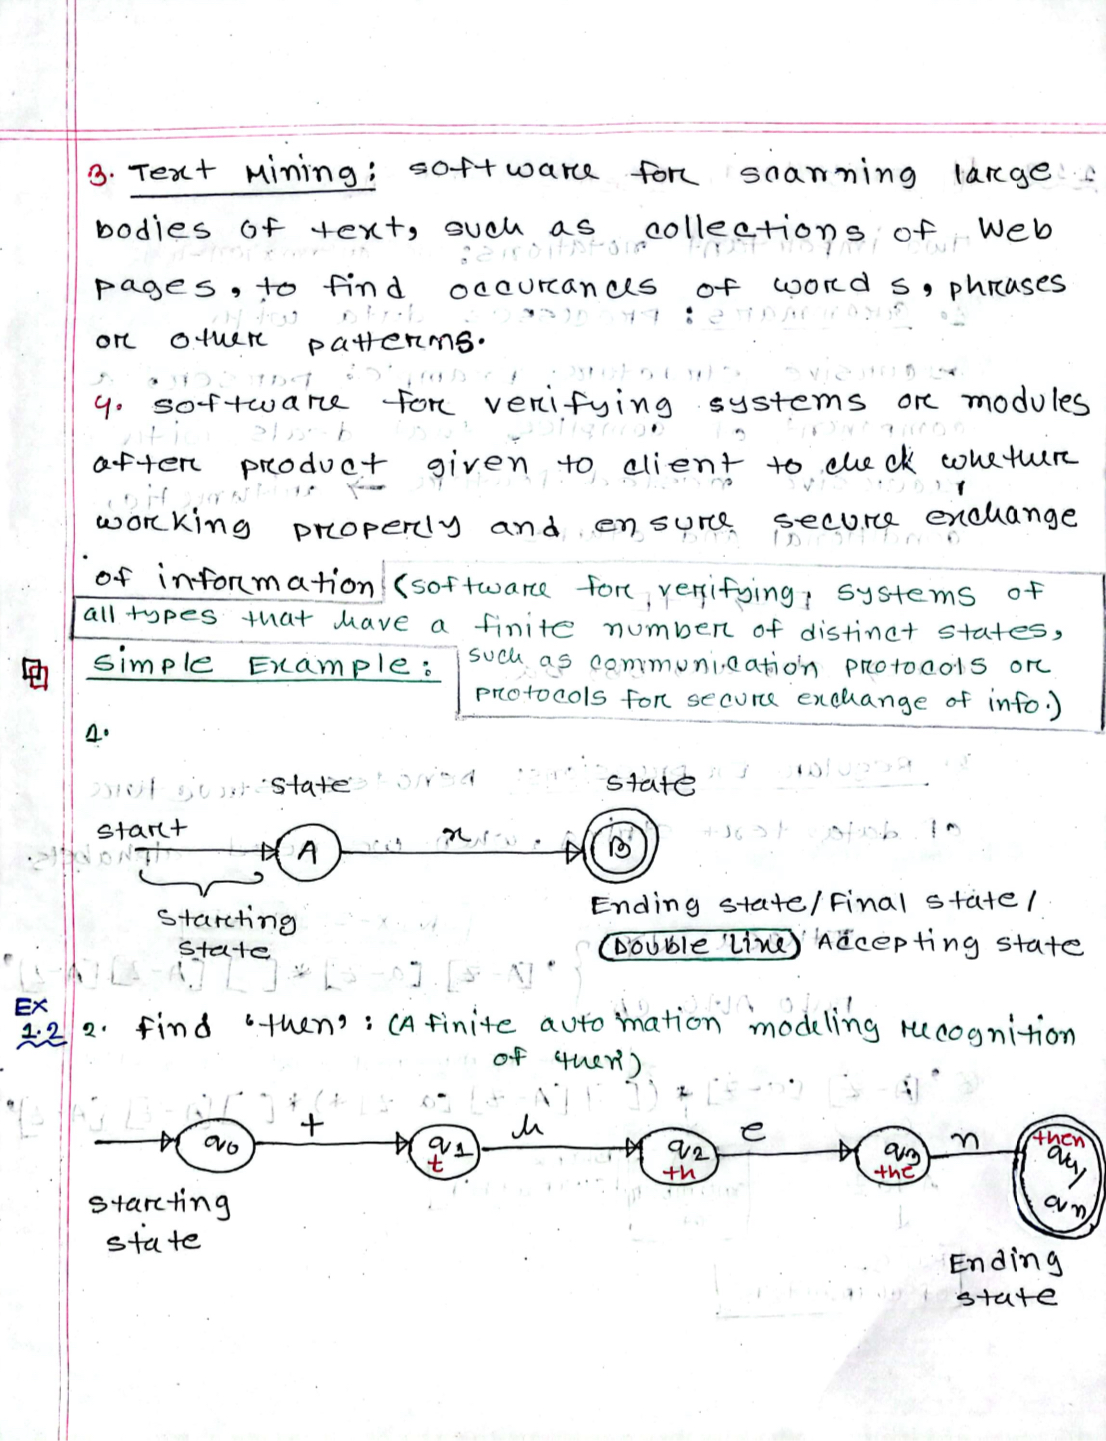 3. Text Mining: software for scanning large
bodies of text, such as collections of Web
pages, to find occurances of words, phrases
or other patterns.
4. software for verifying systems or modules
after product given to client to check whether
working properly and ensure secure exchange
of information (software for verifying systems of
all types that have a finite number of distinct states,
such as communication protocols or
protocols for secure exchange of info.)
Simple Example:
1.
state state
start A x B
Starting
state
Ending state/Final state/
(Double Line) Accepting state
EX
1.2
2. find 'then': (A finite automation modeling recognition
of then)
q0 t q1 h q2 e q3 n then
t th the q4/
qn
Starting
state
Ending
state